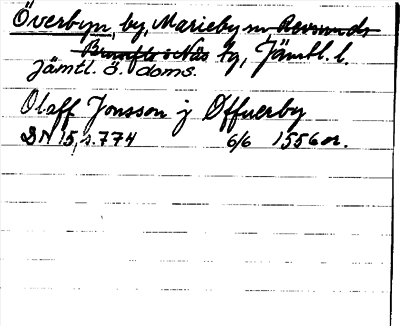 Överbyn, by, Marieby sn, Revsunds
Brunflo o Näs tg, Jämtl. l.
Jämtl. ö. doms.
Olaff Jonsson j Øffuerby
DN 15, s. 774 6/6 1556 or.